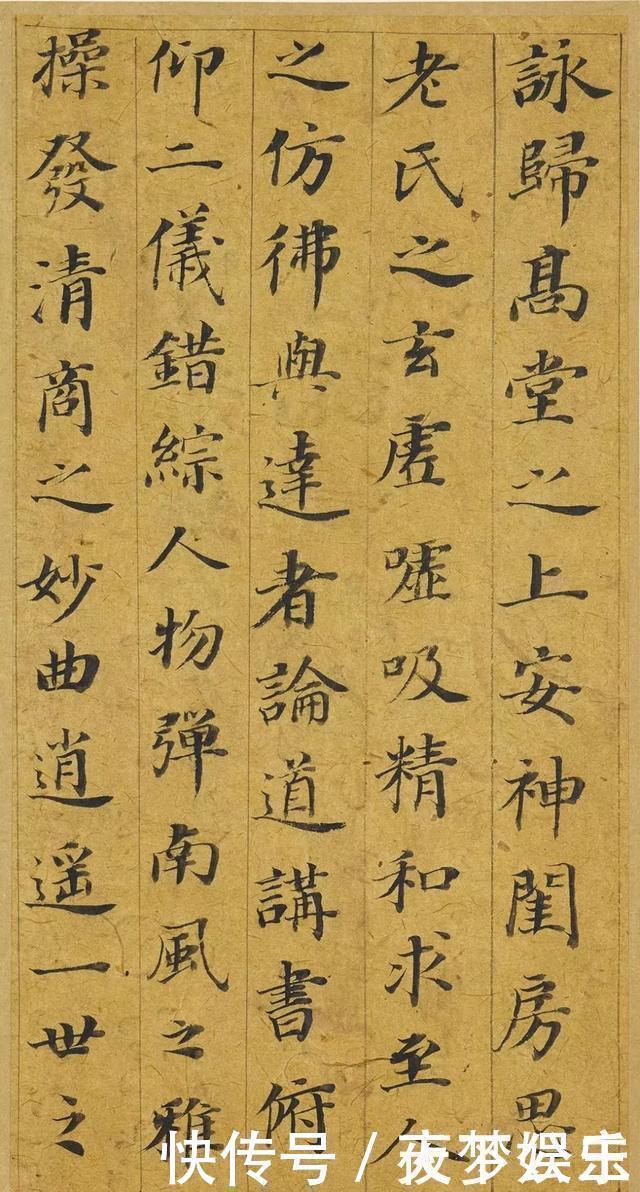 詠歸高堂之上安神閨房思
老氏之玄虛噓吸精和求至人
之仿彿與達者論道講書俯
仰二儀錯綜人物彈南風之雅
操發清商之妙曲逍遥一世之
快传号 / 夜梦娱乐